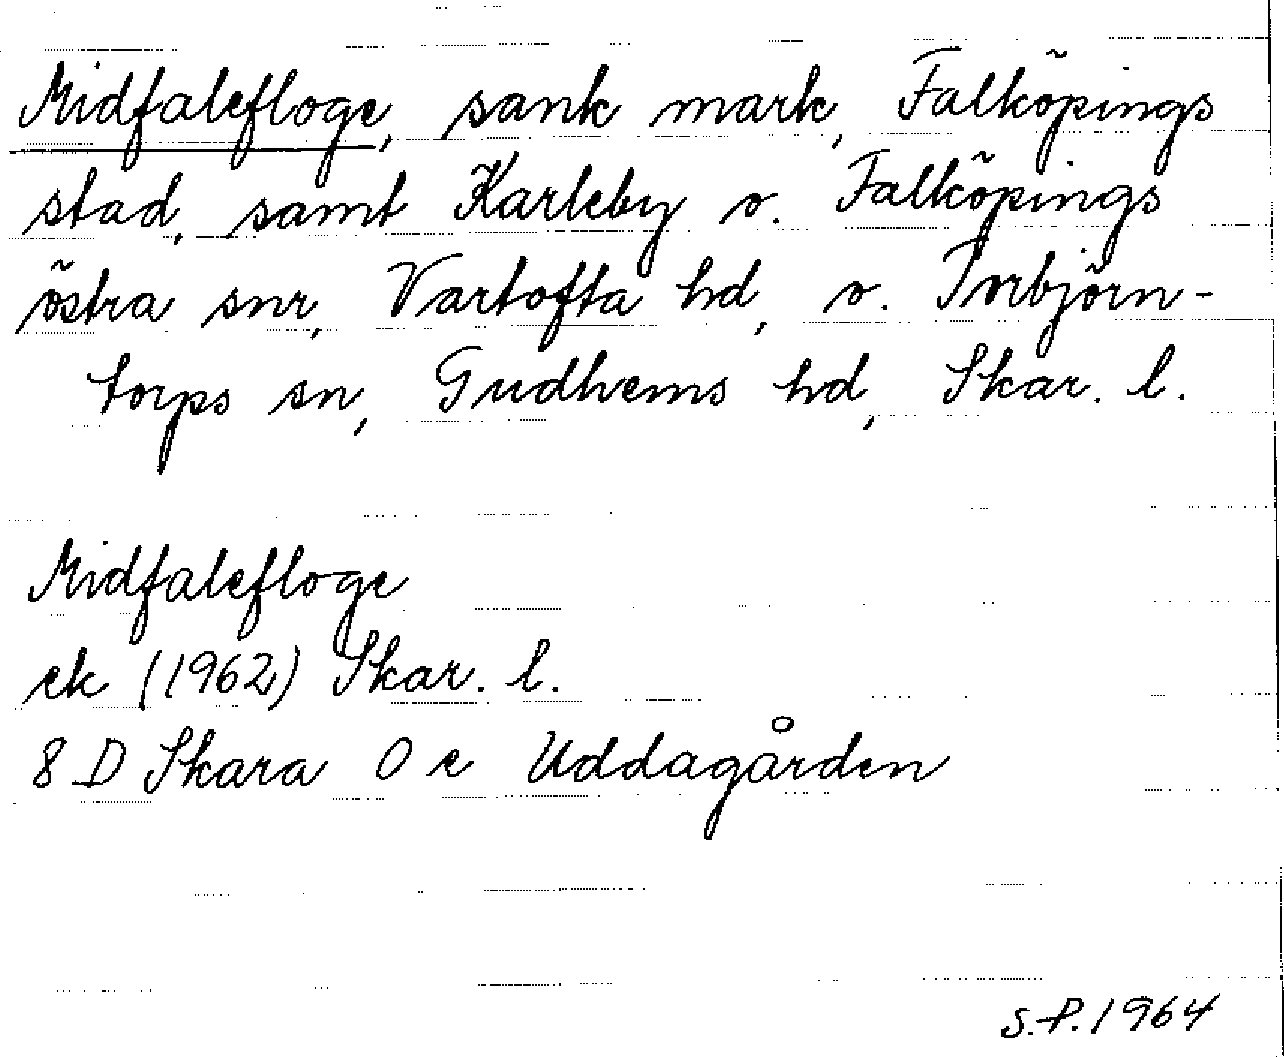 Midfalefloge, sank mark, Falköpings
stad, samt Karleby o. Falköpings
östra snr, Vartofta hd, o. Torbjörn-
torps sn, Gudhems hd, Skar. l.
Midfalefloge
ek (1962) Skar. l.
8 D Skara 0 e Uddagården
S.P. 1964